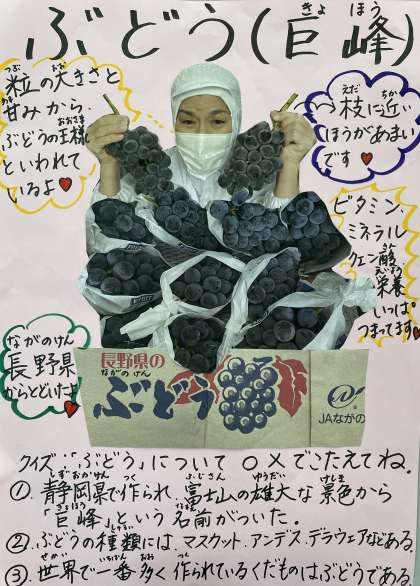 ぶどう(巨峰)
きょ ほう
粒の大きさと
つぶ おお
甘みから、
あま
ぶどうの王様
おうさま
といわれて
いるよ♥
枝に近い
えだ ちか
ほうがあまい
です♥
ビタミン、
ミネラル
クエン酸
さん
栄養
えいよう
いっぱい
つまってます♥
ながのけん
長野県
からとどいたよ
長野県の
ながのけん
ぶどう
JAながの
クイズ:「ぶどう」について ○×でこたえてね。
しずおかけん つく ふじさん ゆうだい けしき
①.静岡県で作られ、富士山の雄大な景色から
きょほう なまえ
「巨峰」という名前がついた。
しゅるい
②.ぶどうの種類には、マスカット、アンデス、デラウェアなどある。
せかい いちばん おお つく
③.世界で一番多く作られているくだものはぶどうである。